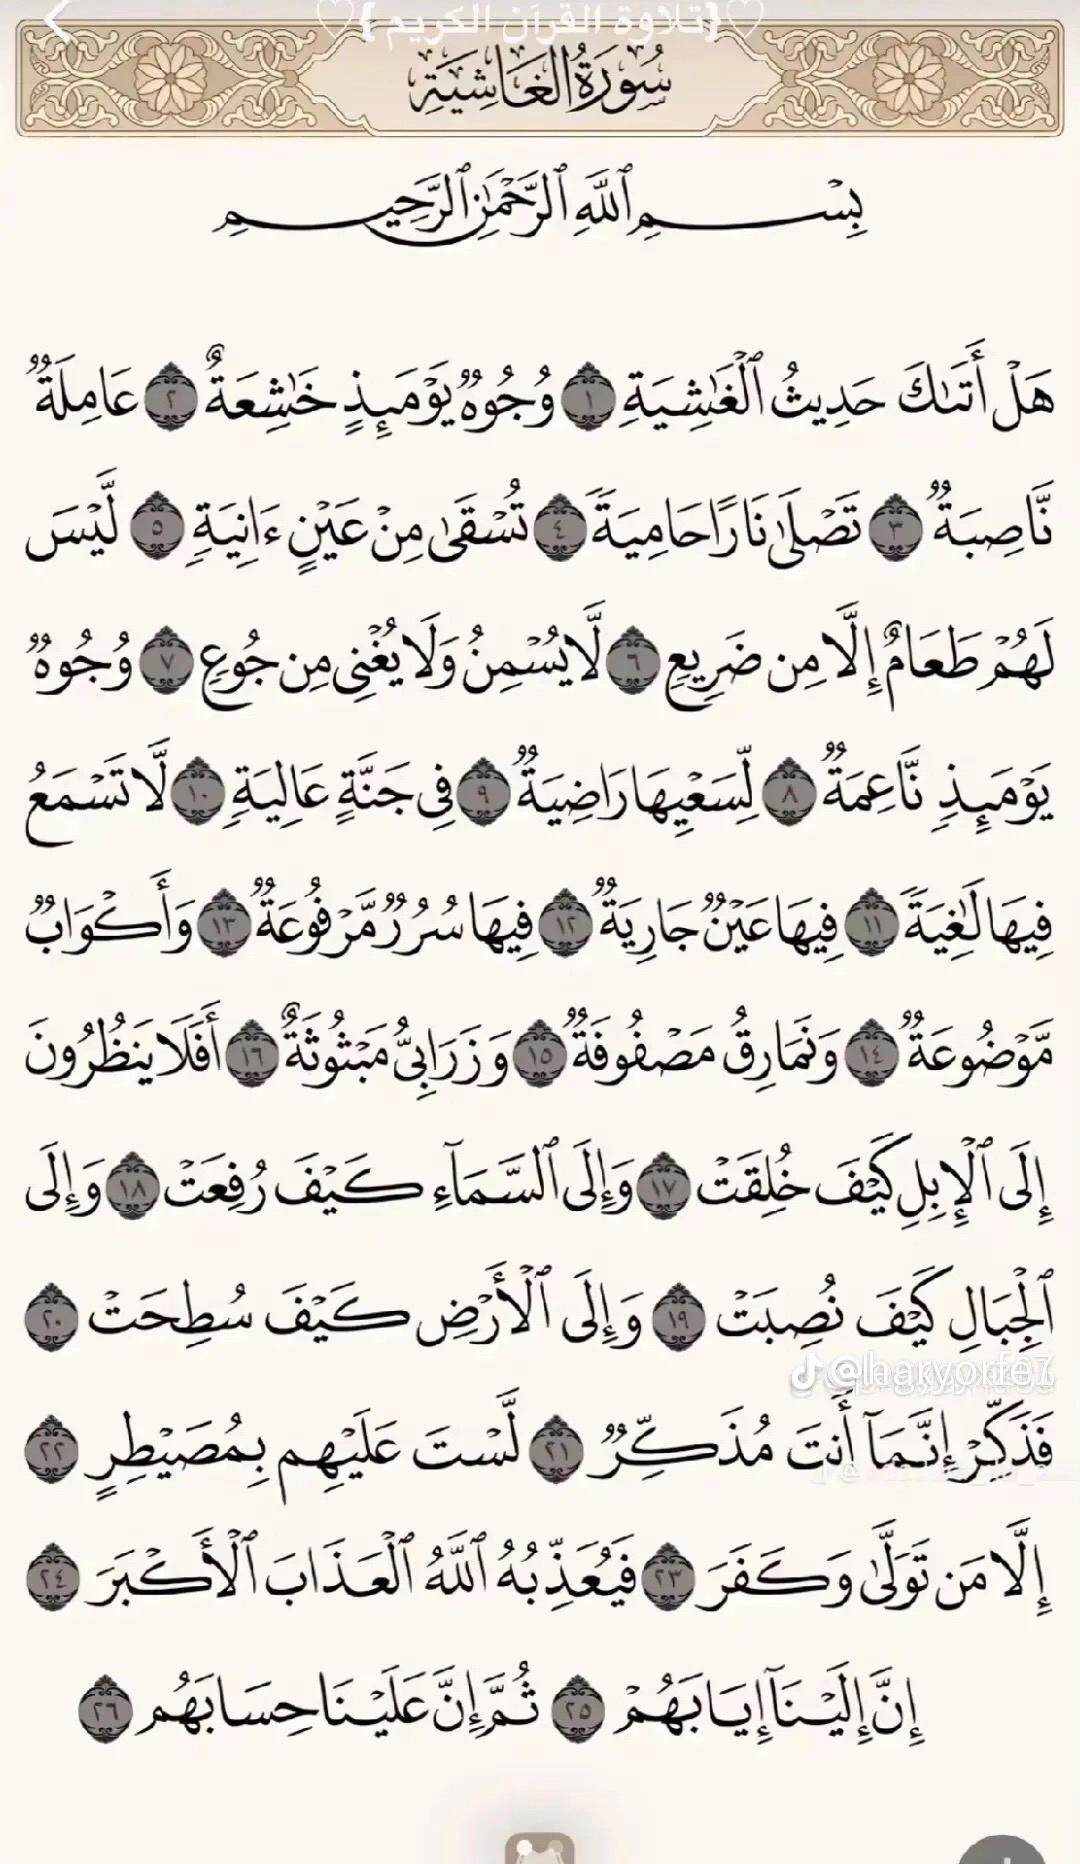 ♡{تلاوة القرآن الكريم}♡
سُورَةُ الغَاشِيَةِ
بِسْمِ ٱللَّهِ ٱلرَّحْمَٰنِ ٱلرَّحِيمِ
هَلْ أَتَىٰكَ حَدِيثُ ٱلْغَٰشِيَةِ ١ وُجُوهٌ يَوْمَئِذٍ خَٰشِعَةٌ ٢ عَامِلَةٌ
نَّاصِبَةٌ ٣ تَصْلَىٰ نَارًا حَامِيَةً ٤ تُسْقَىٰ مِنْ عَيْنٍ ءَانِيَةٍ ٥ لَّيْسَ
لَهُمْ طَعَامٌ إِلَّا مِن ضَرِيعٍ ٦ لَّا يُسْمِنُ وَلَا يُغْنِى مِن جُوعٍ ٧ وُجُوهٌ
يَوْمَئِذٍ نَّاعِمَةٌ ٨ لِّسَعْيِهَا رَاضِيَةٌ ٩ فِى جَنَّةٍ عَالِيَةٍ ١٠ لَّا تَسْمَعُ
فِيهَا لَٰغِيَةً ١١ فِيهَا عَيْنٌ جَارِيَةٌ ١٢ فِيهَا سُرُرٌ مَّرْفُوعَةٌ ١٣ وَأَكْوَابٌ
مَّوْضُوعَةٌ ١٤ وَنَمَارِقُ مَصْفُوفَةٌ ١٥ وَزَرَابِىُّ مَبْثُوثَةٌ ١٦ أَفَلَا يَنظُرُونَ
إِلَى ٱلْإِبِلِ كَيْفَ خُلِقَتْ ١٧ وَإِلَى ٱلسَّمَآءِ كَيْفَ رُفِعَتْ ١٨ وَإِلَى
ٱلْجِبَالِ كَيْفَ نُصِبَتْ ١٩ وَإِلَى ٱلْأَرْضِ كَيْفَ سُطِحَتْ ٢٠
فَذَكِّرْ إِنَّمَآ أَنتَ مُذَكِّرٌ ٢١ لَّسْتَ عَلَيْهِم بِمُصَيْطِرٍ ٢٢
إِلَّا مَن تَوَلَّىٰ وَكَفَرَ ٢٣ فَيُعَذِّبُهُ ٱللَّهُ ٱلْعَذَابَ ٱلْأَكْبَرَ ٢٤
إِنَّ إِلَيْنَآ إِيَابَهُمْ ٢٥ ثُمَّ إِنَّ عَلَيْنَا حِسَابَهُم ٢٦